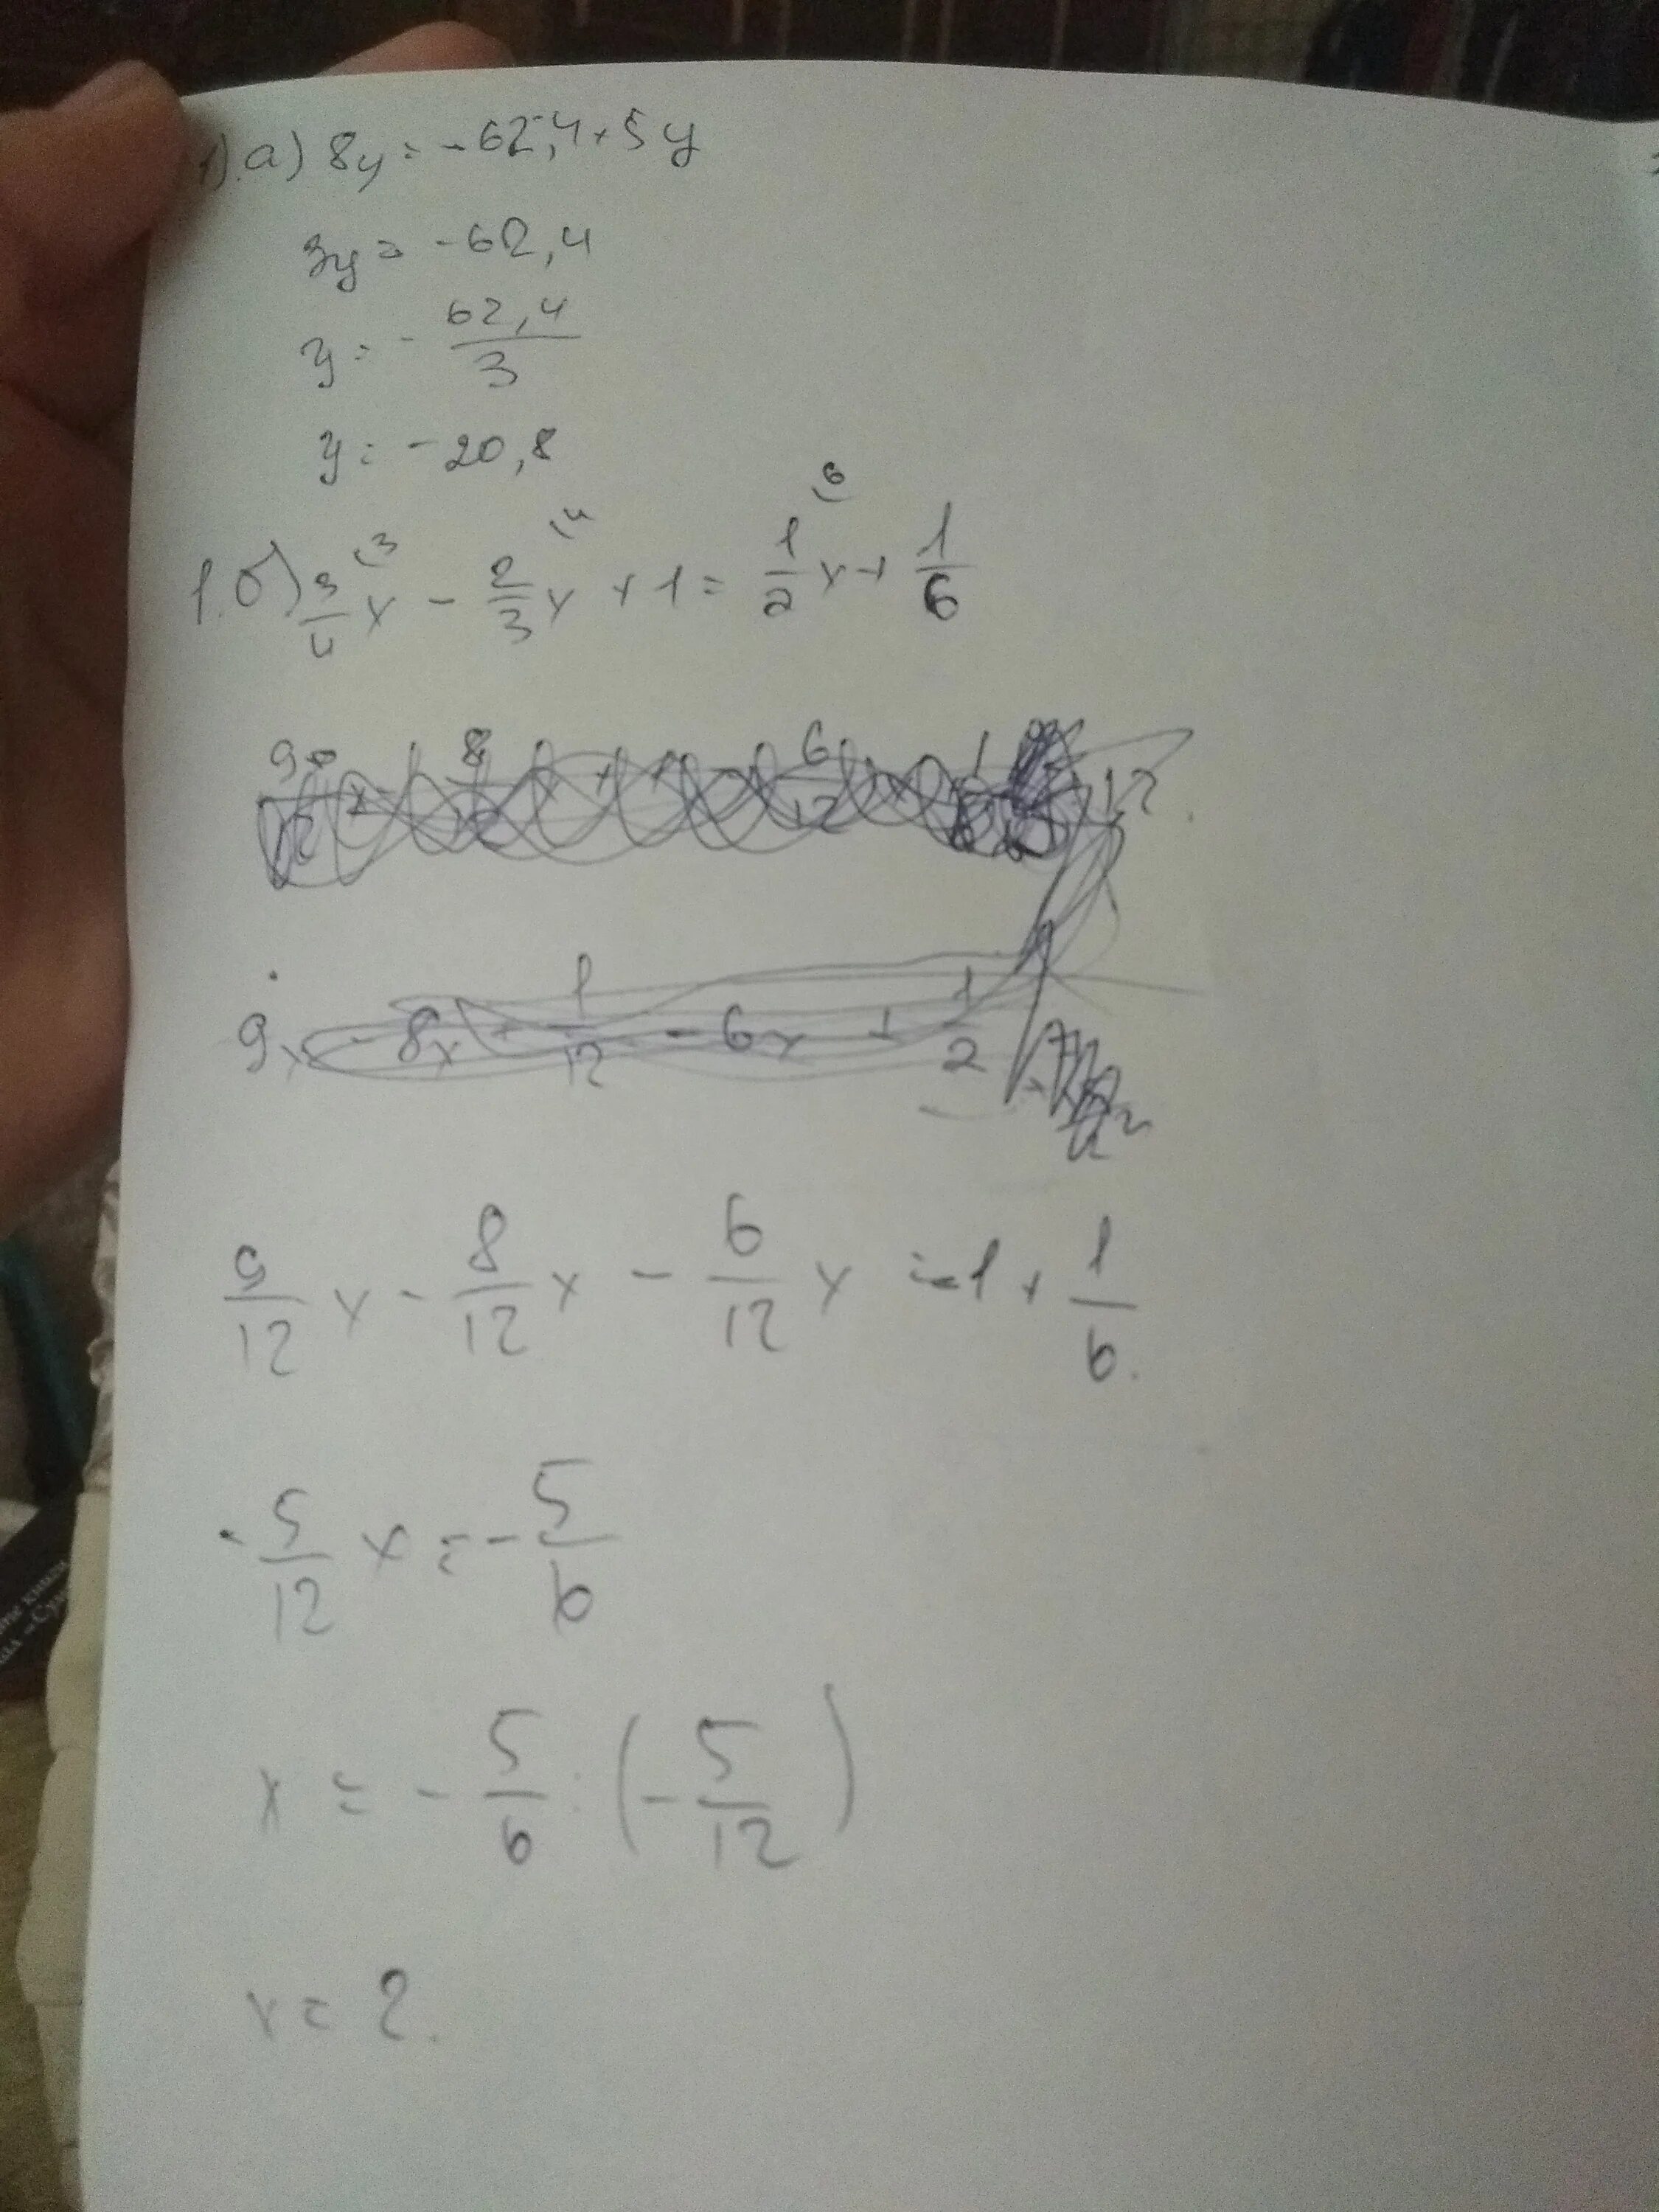 1).а) 8y = -62,4+5y
3y = -62,4
y = - 62,4/3
y = -20,8
1.б) 3/4 x - 2/3 x + 1 = 1/2 x + 1/6
3 4 6
9x - 8x + 1/12 - 6x + 1/2
9/12 x - 8/12 x - 6/12 x = -1 + 1/6.
- 5/12 x = - 5/6
x = - 5/6 : (- 5/12)
x = 2.